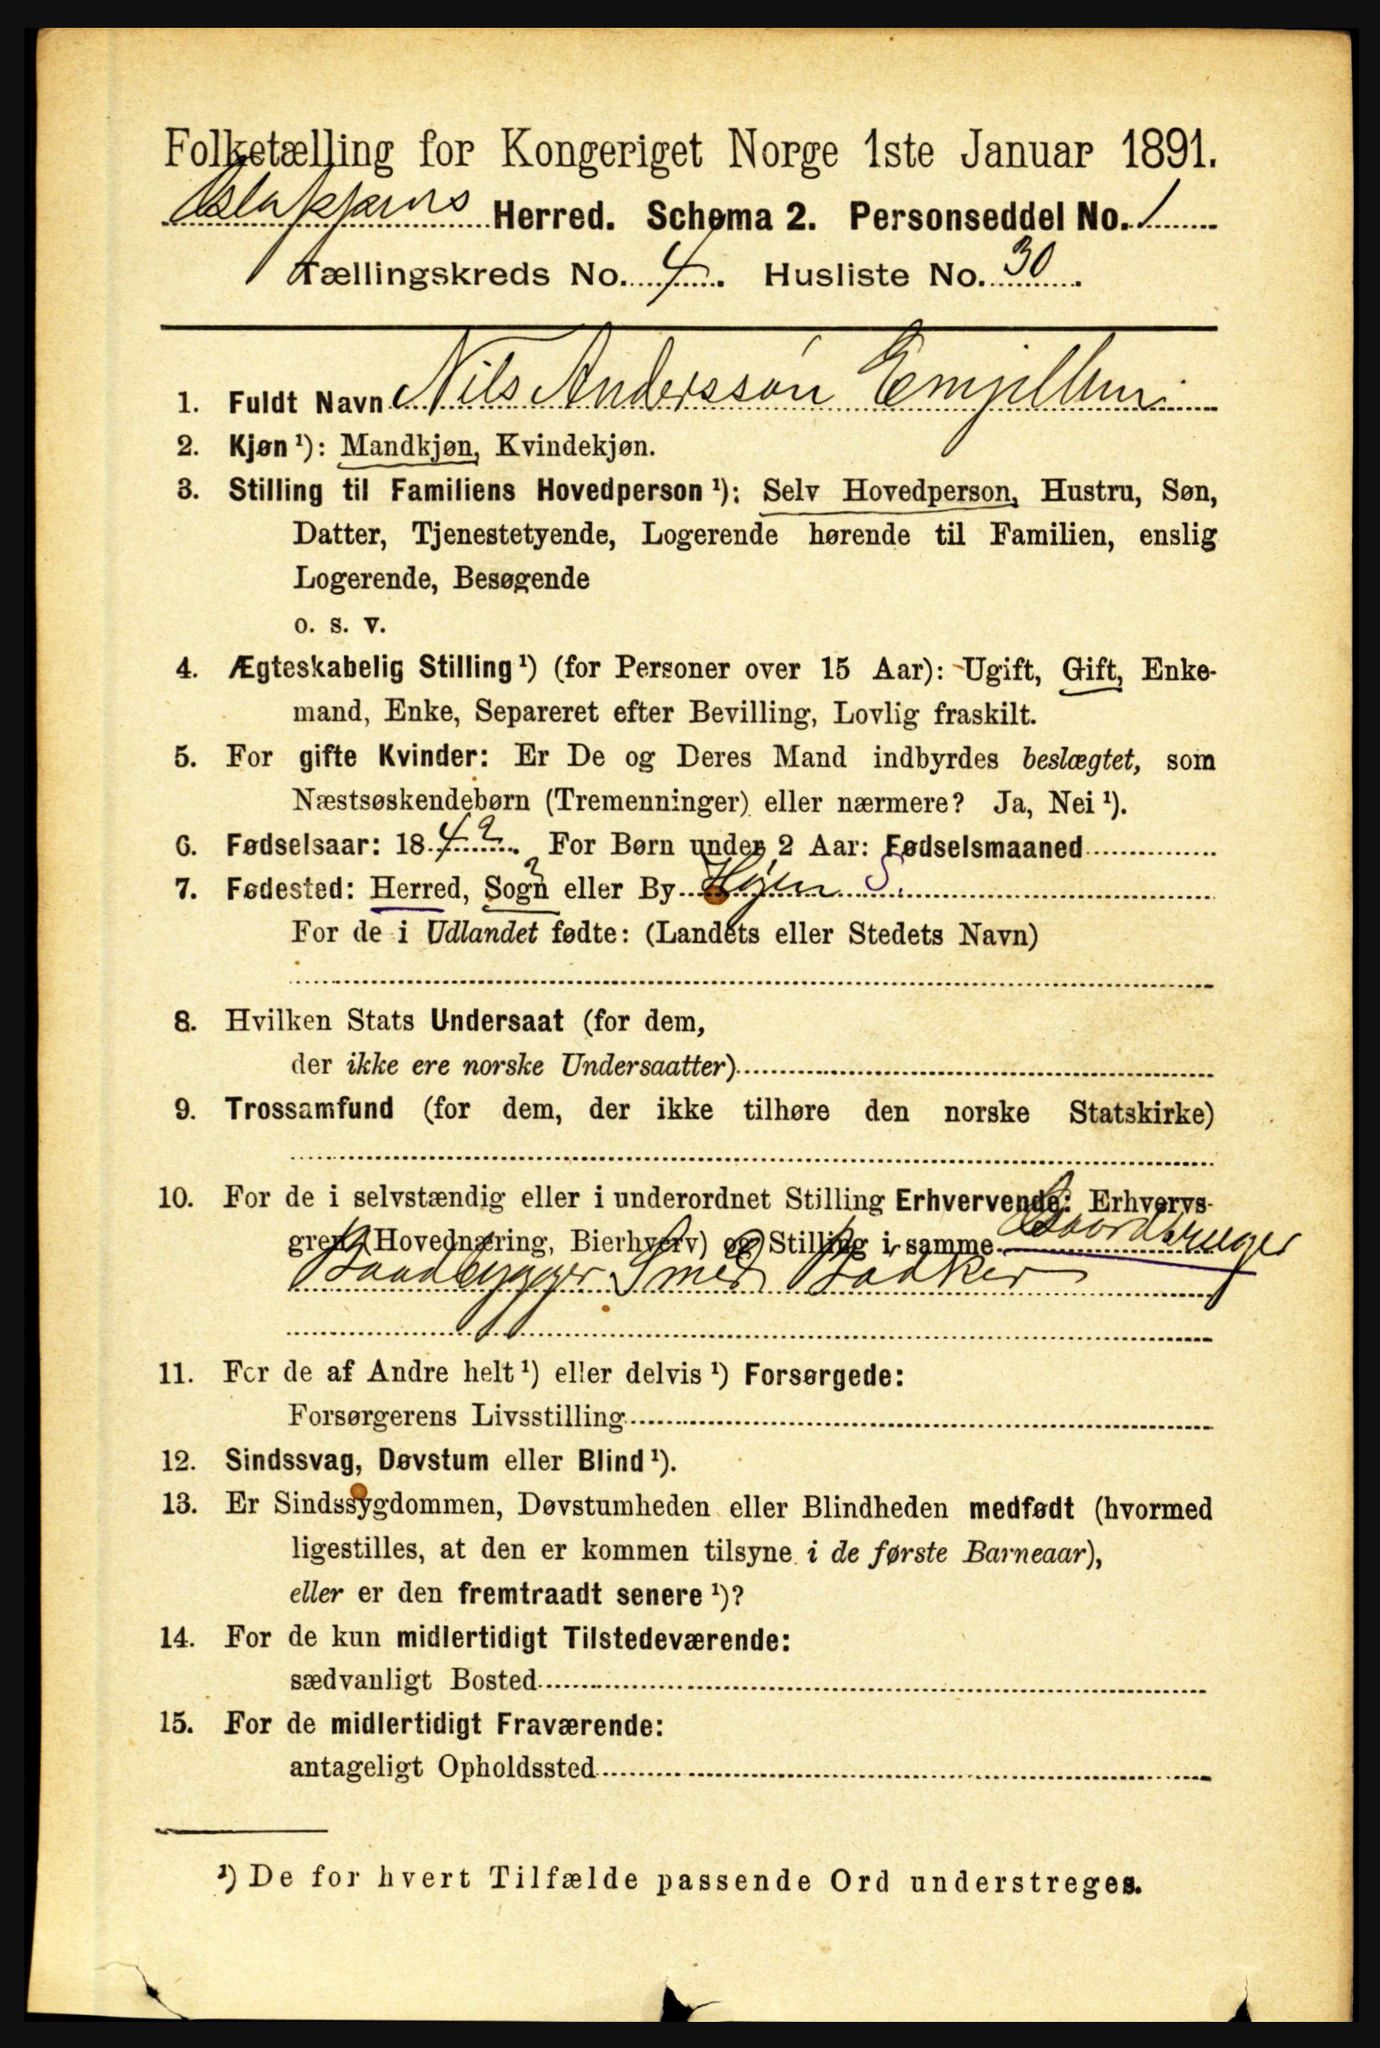 Folketælling for Kongeriget Norge 1ste Januar 1891.
Herred. Schema 2. Personseddel No. 1
Tællingskreds No. 4. Husliste No. 30.
1. Fuldt Navn Nils Andersson
2. Kjøn ¹): Mandkjøn, Kvindekjøn.
3. Stilling til Familiens Hovedperson ¹): Selv Hovedperson, Hustru, Søn,
Datter, Tjenestetyende, Logerende hørende til Familien, enslig
Logerende, Besøgende
o. s. v.
4. Ægteskabelig Stilling ¹) (for Personer over 15 Aar): Ugift, Gift, Enke-
mand, Enke, Separeret efter Bevilling, Lovlig fraskilt.
5. For gifte Kvinder: Er De og Deres Mand indbyrdes beslægtet, som
Næstsøskendebørn (Tremenninger) eller nærmere? Ja, Nei ¹).
6. Fødselsaar: 1842. For Børn under 2 Aar: Fødselsmaaned
7. Fødested: Herred, Sogn eller By S.
For de i Udlandet fødte: (Landets eller Stedets Navn)
8. Hvilken Stats Undersaat (for dem,
der ikke ere norske Undersaatter)
9. Trossamfund (for dem, der ikke tilhøre den norske Statskirke)
10. For de i selvstændig eller i underordnet Stilling Erhvervende: Erhvervs-
gren (Hovednæring, Bierhverv) og Stilling i samme Gaardbruger
Baadbygger Smed Bødker
11. For de af Andre helt ¹) eller delvis ¹) Forsørgede:
Forsørgerens Livsstilling
12. Sindssvag, Døvstum eller Blind ¹).
13. Er Sindssygdommen, Døvstumheden eller Blindheden medfødt (hvormed
ligestilles, at den er kommen tilsyne i de første Barneaar),
eller er den fremtraadt senere ¹)?
14. For de kun midlertidigt Tilstedeværende:
sædvanligt Bosted
15. For de midlertidigt Fraværende:
antageligt Opholdssted
¹) De for hvert Tilfælde passende Ord understreges.